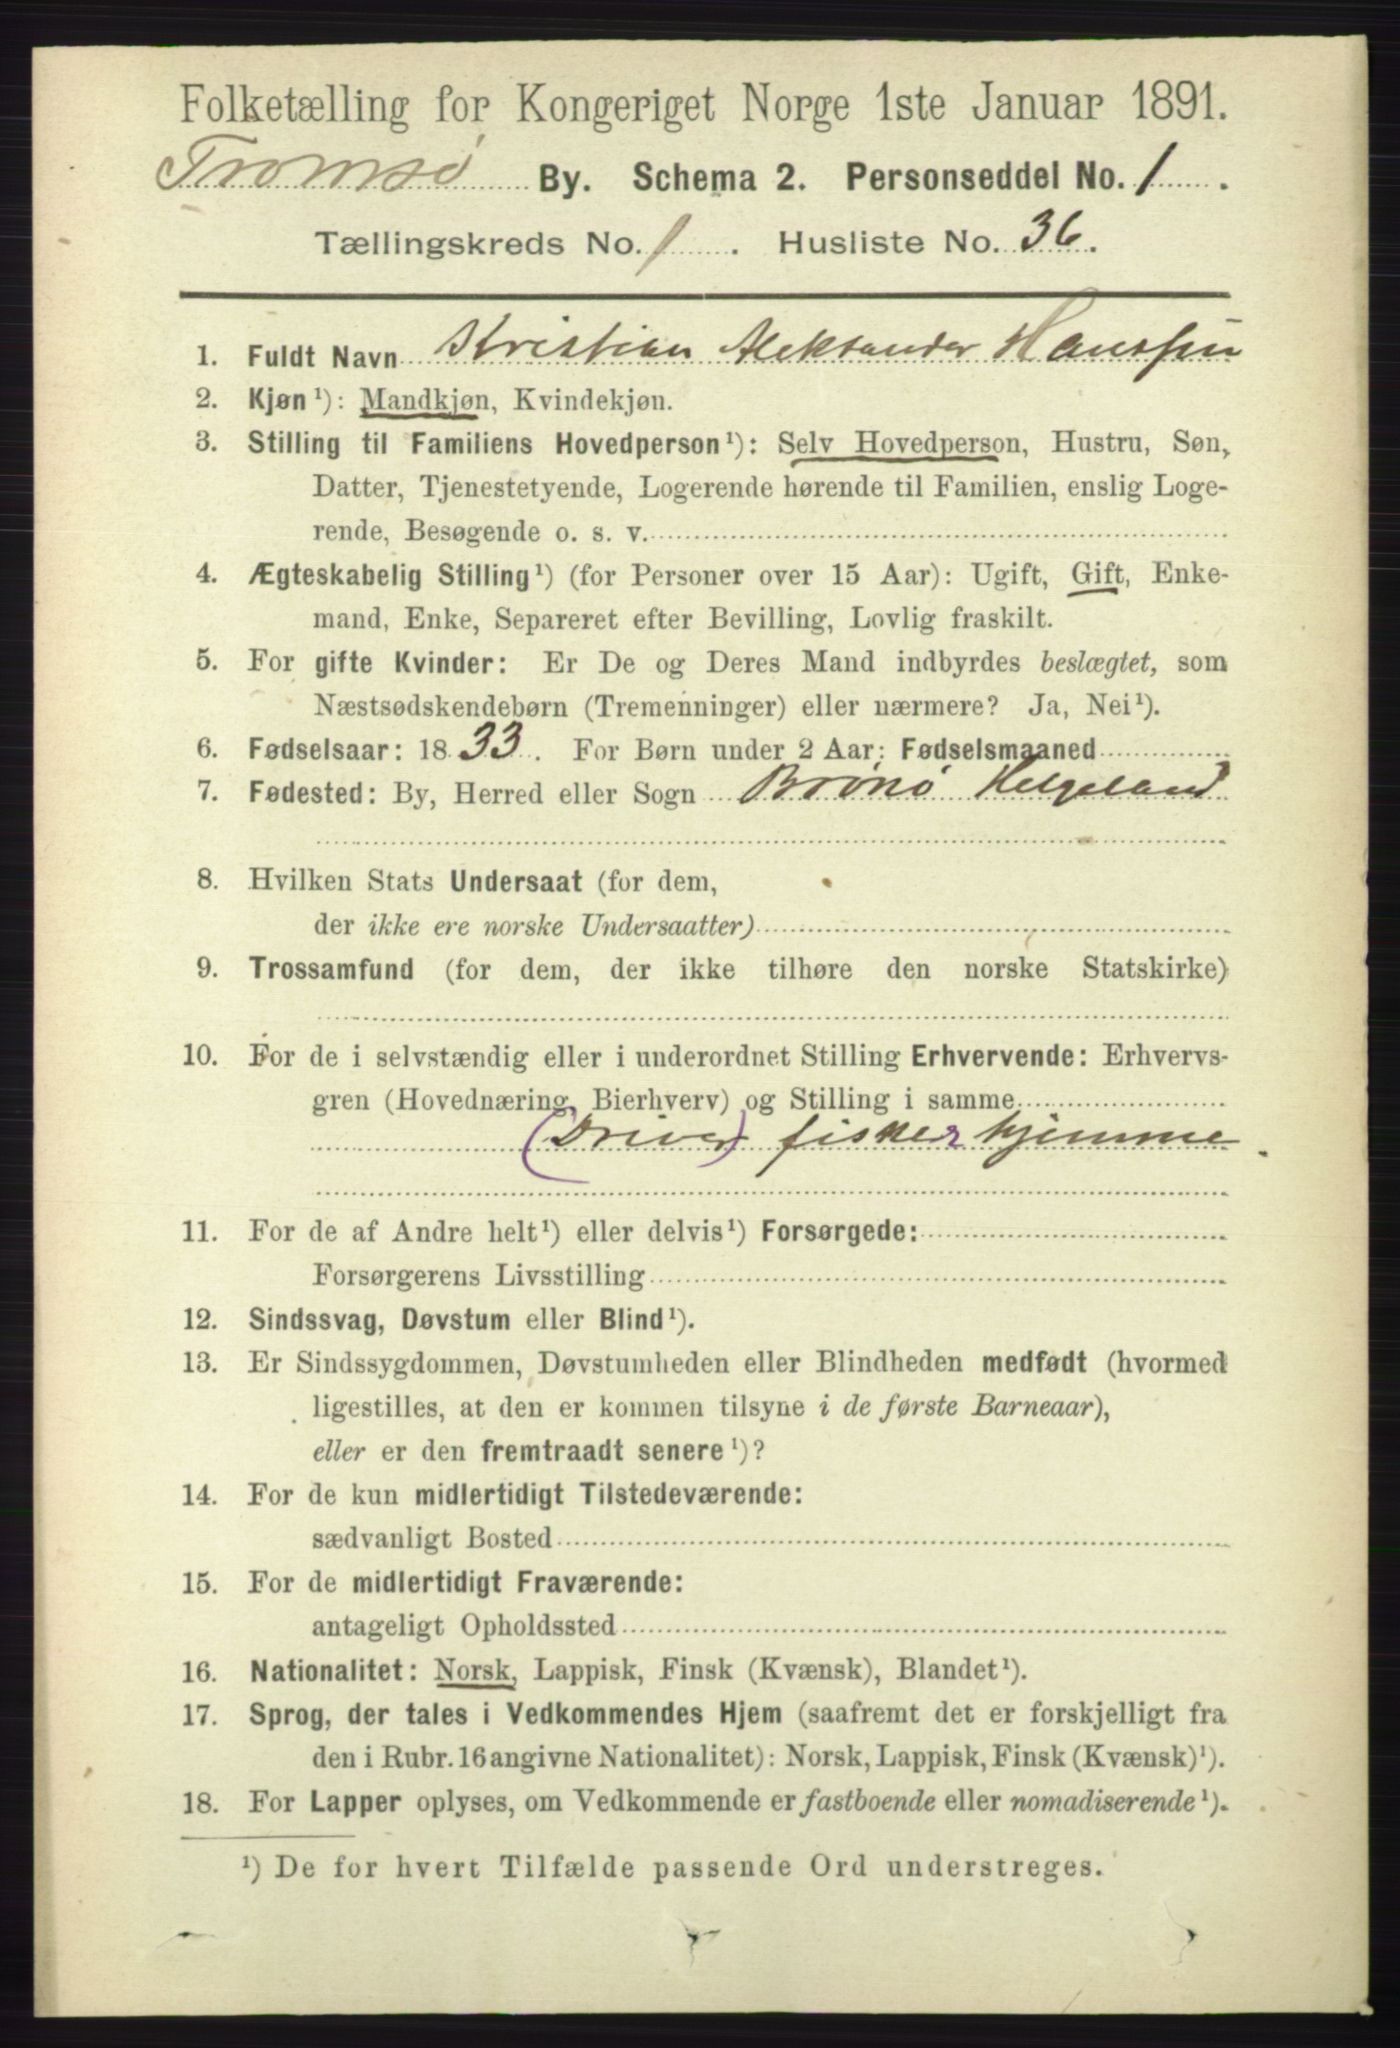 Folketælling for Kongeriget Norge 1ste Januar 1891.
Tromsø By. Schema 2. Personseddel No. 1.
Tællingskreds No. 1. Husliste No. 36.
1. Fuldt Navn Kristian Aleksander Hanssen
2. Kjøn ¹): Mandkjøn, Kvindekjøn.
3. Stilling til Familiens Hovedperson¹): Selv Hovedperson, Hustru, Søn,
Datter, Tjenestetyende, Logerende hørende til Familien, enslig Loge-
rende, Besøgende o. s. v.
4. Ægteskabelig Stilling¹) (for Personer over 15 Aar): Ugift, Gift, Enke-
mand, Enke, Separeret efter Bevilling, Lovlig fraskilt.
5. For gifte Kvinder: Er De og Deres Mand indbyrdes beslægtet, som
Næstsødskendebørn (Tremenninger) eller nærmere? Ja, Nei¹).
6. Fødselsaar: 1833. For Børn under 2 Aar: Fødselsmaaned
7. Fødested: By, Herred eller Sogn Brønø Helgeland
8. Hvilken Stats Undersaat (for dem,
der ikke ere norske Undersaatter)
9. Trossamfund (for dem, der ikke tilhøre den norske Statskirke)
10. For de i selvstændig eller i underordnet Stilling Erhvervende: Erhvervs-
gren (Hovednæring, Bierhverv) og Stilling i samme
(Driver) fisker hjemme
11. For de af Andre helt¹) eller delvis¹) Forsørgede:
Forsørgerens Livsstilling
12. Sindssvag, Døvstum eller Blind¹).
13. Er Sindssygdommen, Døvstumheden eller Blindheden medfødt (hvormed
ligestilles, at den er kommen tilsyne i de første Barneaar),
eller er den fremtraadt senere ¹)?
14. For de kun midlertidigt Tilstedeværende:
sædvanligt Bosted
15. For de midlertidigt Fraværende:
antageligt Opholdssted
16. Nationalitet: Norsk, Lappisk, Finsk (Kvænsk), Blandet¹).
17. Sprog, der tales i Vedkommendes Hjem (saafremt det er forskjelligt fra
den i Rubr. 16 angivne Nationalitet): Norsk, Lappisk, Finsk (Kvænsk)¹).
18. For Lapper oplyses, om Vedkommende er fastboende eller nomadiserende¹).
¹) De for hvert Tilfælde passende Ord understreges.